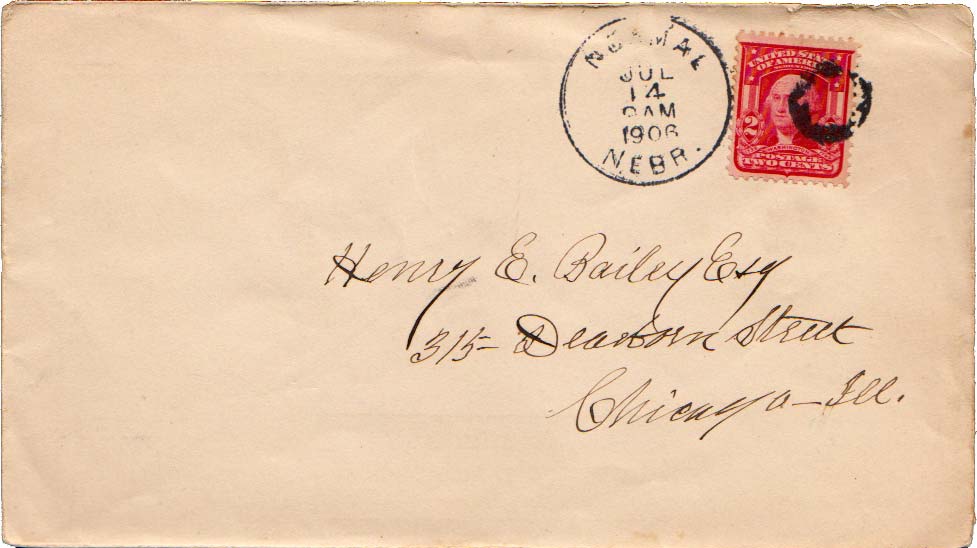 NORMAL
JUL
14
9AM
1906
NEBR.
UNITED STATES
OF AMERICA
2
WASHINGTON
POSTAGE
TWO CENTS
Henry E. Bailey Esq
315- Dearborn Street
Chicago - Ill.